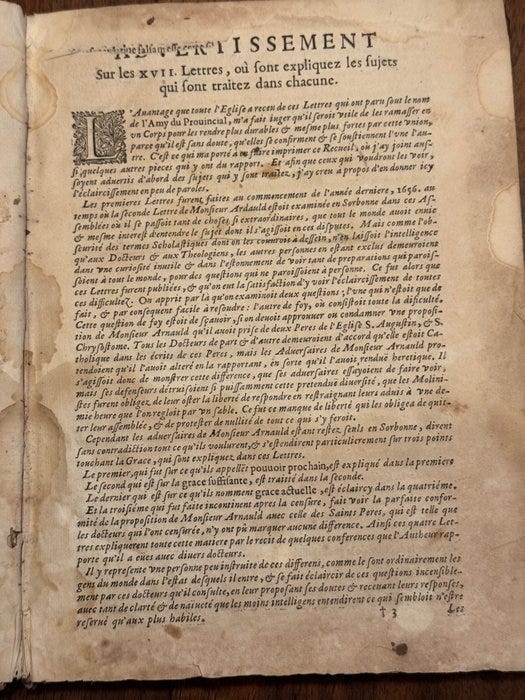 AVERTISSEMENT
Sur les XVII. Lettres, où sont expliquez les sujets
qui sont traitez dans chacune.
L'Auantage que toute l'Eglise a receu de ces Lettres qui ont paru sout le nom
de l'Amy du Prouincial, m'a fait iuger qu'il seroit vtile de les ramasser en
vn Corps pour les rendre plus durables & mesme plus fortes par cette vnion,
parce qu'il est sans doute, qu'elles se confirment & se soustiennent l'vne l'au-
tre. C'est ce qui m'a porté à en faire imprimer ce Recueil, où j'ay joint aus-
si quelques autres pieces qui y ont du rapport. Et afin que ceux qui voudront les voir,
soyent aduertis d'abord des sujets qui y sont traitez, j'ay creu a propos d'en donner icy
l'éclaircissement en peu de paroles.
Les premieres Lettres furent faites au commencement de l'année derniere, 1656. au
temps où la seconde Lettre de Monsieur Arnauld estoit examinée en Sorbonne dans ces As-
semblées où il se passoit tant de choses si extraordinaires, que tout le monde auoit enuie
& mesme interest d'entendre le sujet dont il s'agissoit en ces disputes. Mais comme l'ob-
scurité des termes Scholastiques dont on les couuroit à dessein, n'en laissoit l'intelligence
qu'aux Docteurs & aux Theologiens, les autres personnes en estant exclus demeuroient
dans vne curiosité inutile & dans l'estonnement de voir tant de preparations qui parois-
soient à tout le monde, pour des questions qui ne paroissoient à personne. Ce fut alors que
ces Lettres furent publiées, & qu'on eut la satisfaction d'y voir l'éclaircissement de toutes
ces difficultez. On apprit par là qu'on examinoit deux questions; l'vne qui n'estoit que de
fait, & par consequent facile à resoudre: l'autre de foy, où consistoit toute la dificulté.
Cette question de foy estoit de sçauoir, si on deuoit approuver ou condamner vne proposi-
tion de Monsieur Arnauld qu'il auoit prise de deux Peres de l'Eglise S. Augustin, & S.
Chrysostome. Tous les Docteurs de part & d'autre demeuroient d'accord qu'elle estoit Ca-
tholique dans les écrits de ces Peres, mais les Aduersaires de Monsieur Arnauld pre-
tendoient qu'il l'auoit alteré en la rapportant, en sorte qu'il l'auoit renduë heretique. Il
s'agissoit donc de monstrer cette difference, que ses aduersaires essayoient de faire voir,
mais ses defenseurs détruisoient si puissamment cette pretenduë diuersité, que les Molini-
stes furent obligez de leur oster la liberté de respondre en restraignant leurs aduis à vne de-
mie heure que l'on regloit par vn sable. Ce fut ce manque de liberté qui les obligea de quit-
ter leur assemblée, & de protester de nullité de tout ce qui s'y feroit.
Cependant les aduersaires de Monsieur Arnauld estant restez seuls en Sorbonne, dirent
sans contradiction tout ce qu'ils voulurent, & s'estendirent particulierement sur trois points
touchant la Grace, qui sont expliquez dans ces Lettres.
Le premier, qui fut sur ce qu'ils appellẽt pouuoir prochain, est expliqué dans la premiere
Le second qui est sur la grace suffisante, est traitté dans la seconde.
Le dernier qui est sur ce qu'ils nomment grace actuelle, est éclaircy dans la quatriéme.
Et la troisiéme qui fut faite incontinent apres la censure, fait voir la parfaite confor-
mité de la proposition de Monsieur Arnauld auec celle des Saints Peres, qui est telle que
les docteurs qui l'ont censurée, n'y ont pû marquer aucune difference. Ainsi ces quatre Let-
tres expliquerent toute cette matiere par le recit de quelques conferences que l'Autheur rap-
porte qu'il a eües auec diuers docteurs.
Il y represente vne personne peu instruite de ces differens, comme le sont ordinairement les
gens du monde dans l'estat desquels il entre, & se fait éclaircir de ces questions incensible-
ment par ces docteurs qu'il consulte, en leur proposant ses doutes & receuant leurs responses,
auec tant de clarté & de naïueté que les moins intelligens entendirent ce qui sembloit n'estre
reserué qu'aux plus habiles.
† 3 Les